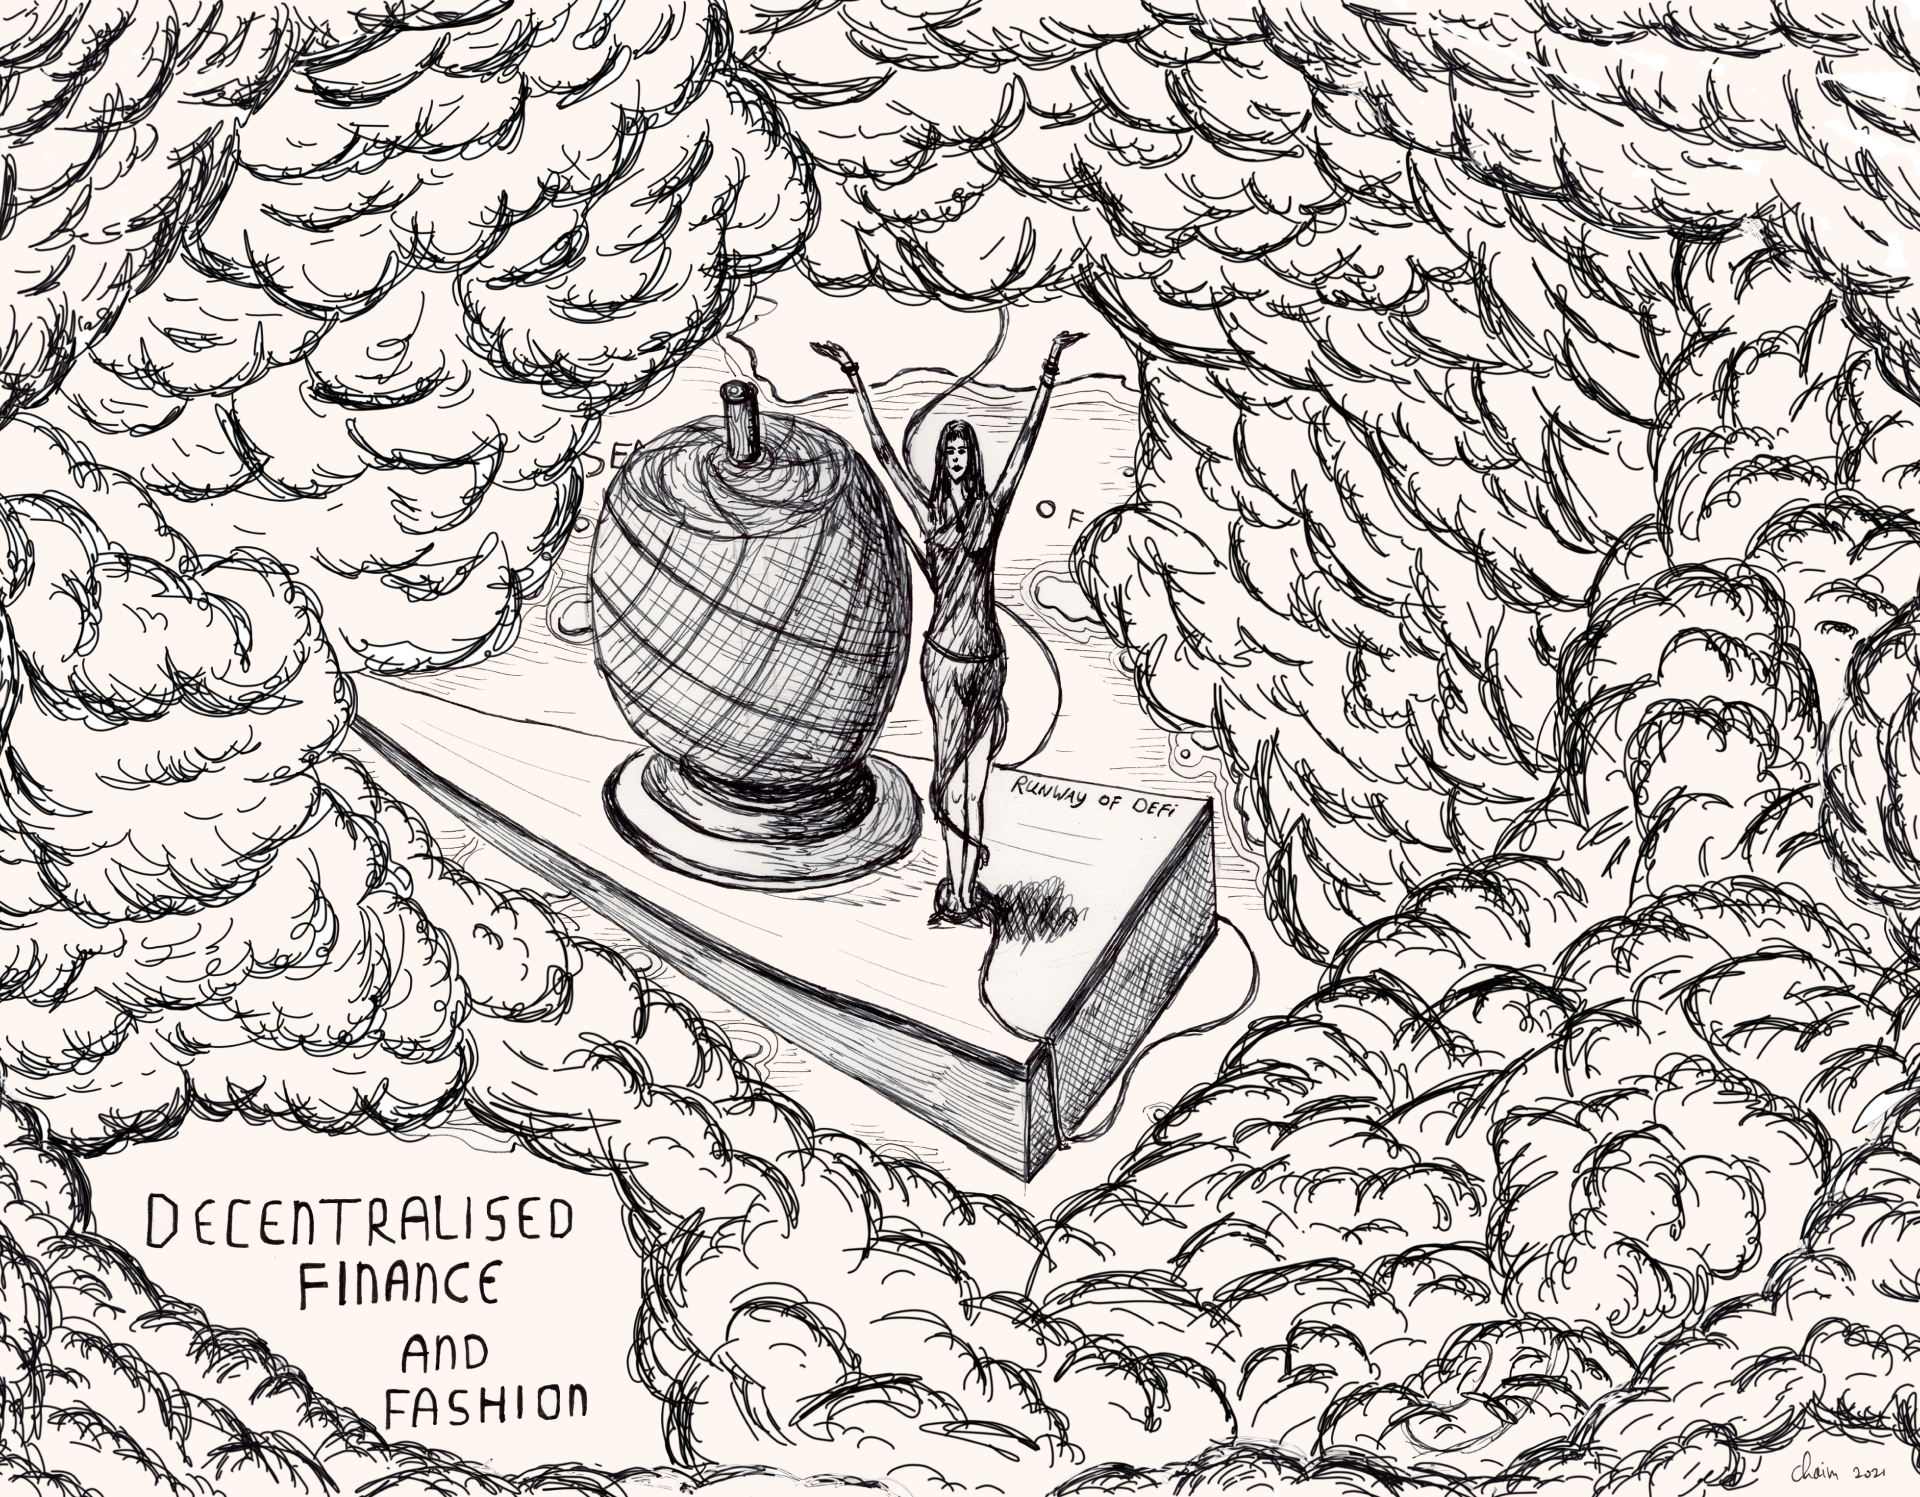 SEA
OF
RUNWAY OF DEFi
DECENTRALISED
FINANCE
AND
FASHION
Chaim 2021